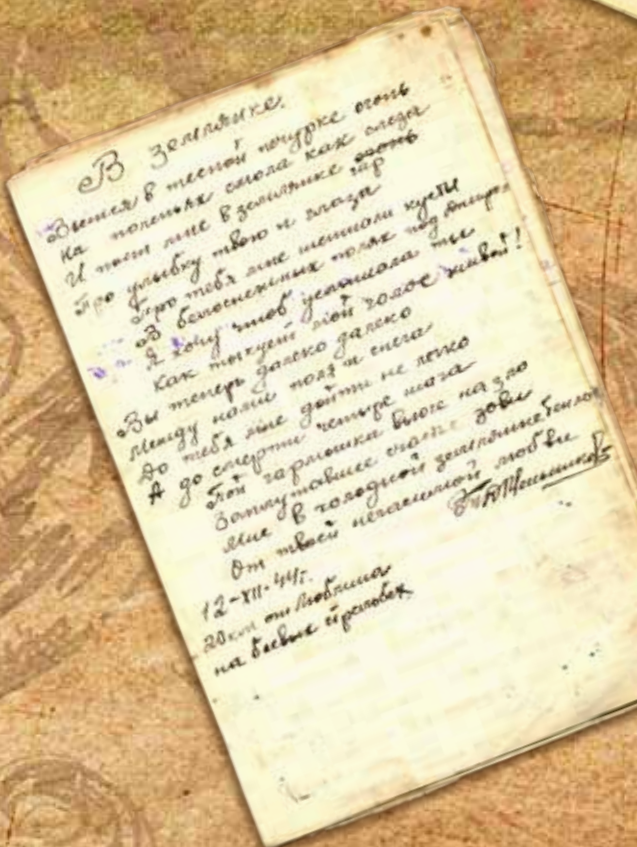 В землянке.
Вьется в тесной печурке огонь
На поленьях смола как слеза
И поет мне в землянке огонь гар
Про улыбку твою и глаза
Про тебя мне шептали кусты
В белоснежных полях под
Я хочу чтоб услышала ты
Как тоскует мой голос живой!
Вы теперь далеко далеко
Между нами поля и снега
До тебя мне дойти не легко
А до смерти четыре шага
Пой гармошка вьюге на зло
Заплутавшее счастье зови
Мне в холодной землянке тепло
От твоей негасимой любви
12-XII-44г.
20 км от Люблина
на боевых